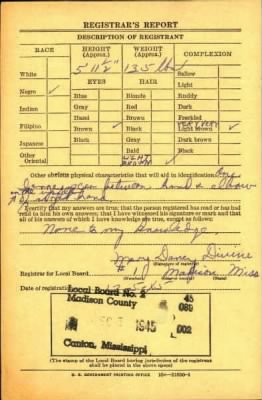 REGISTRAR'S REPORT
DESCRIPTION OF REGISTRANT
RACE
HEIGHT
(Approx.)
WEIGHT
(Approx.)
COMPLEXION
White
5' 11½"
135 lbs
Sallow
EYES
HAIR
Light
Negro ✓
Blue
Blonde
Ruddy
Gray
Red
Dark
Indian
Hazel
Brown
Freckled
Filipino
Brown ✓
Black ✓
VERY VERY
Light brown ✓
Japanese
Black
Gray
Dark brown
Other
Oriental
Bald
Black
LIGHT
BROWN
Other obvious physical characteristics that will aid in identification One
scar between hand & elbow
right hand
I certify that my answers are true; that the person registered has read or has had
read to him his own answers; that I have witnessed his signature or mark and that
all of his answers of which I have knowledge are true, except as follows:
None to my knowledge.
Mary Divine
(Signature of registrar)
Registrar for Local Board # 1 Madison Miss
Date of registration
Local Board No. 2 45
Madison County 089
1945 002
Canton, Mississippi
(The stamp of the Local Board having jurisdiction of the registrant
shall be placed in the above space)
U. S. GOVERNMENT PRINTING OFFICE 16—21630-1